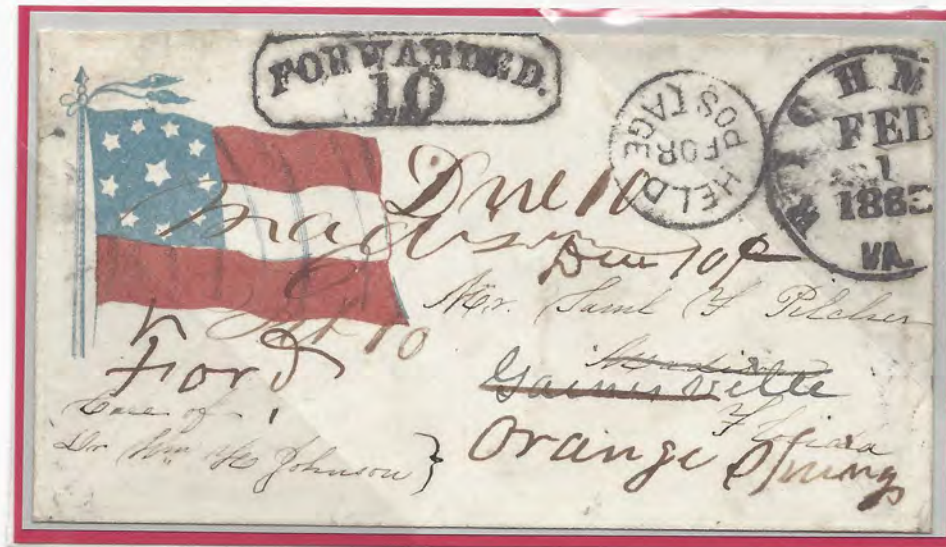 FORWARDED.
10
HELD
FOR
POSTAGE
RICHM
FEB
1
1863
VA.
Due 10
Madison
Due 10¢
Mr. Saml F Pilcher
10
Madison
Ford
Gainesville
Florida
Care of
Dr Wm H Johnson }
Orange Springs